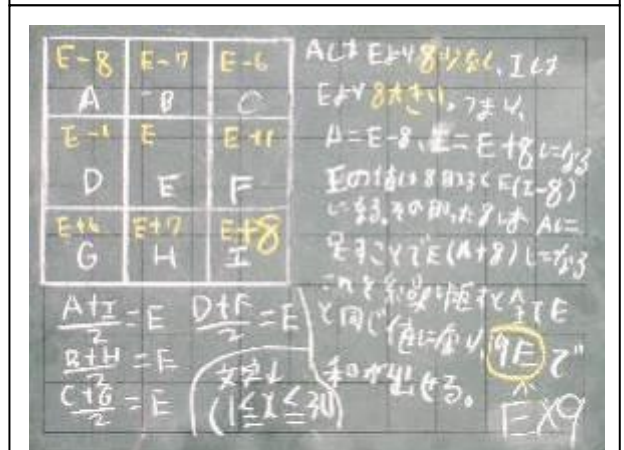 E-8 E-7 E-6
A B C
E-1 E E+1
D E F
E+6 E+7 E+8
G H I
A+I/2=E D+F/2=E
B+H/2=E
C+G/2=E
文字↓
(1≦X≦30)
AはEより8少なく、Iは
Eより8大きい。つまり、
A=E-8、I=E+8になる
Iの値は8引くとE(I-8)
になる。その引いた8はAに
足すことでE(A+8)になる
これを繰り返すと全てE
と同じ値になり、9Eで
和が出せる。
E×9